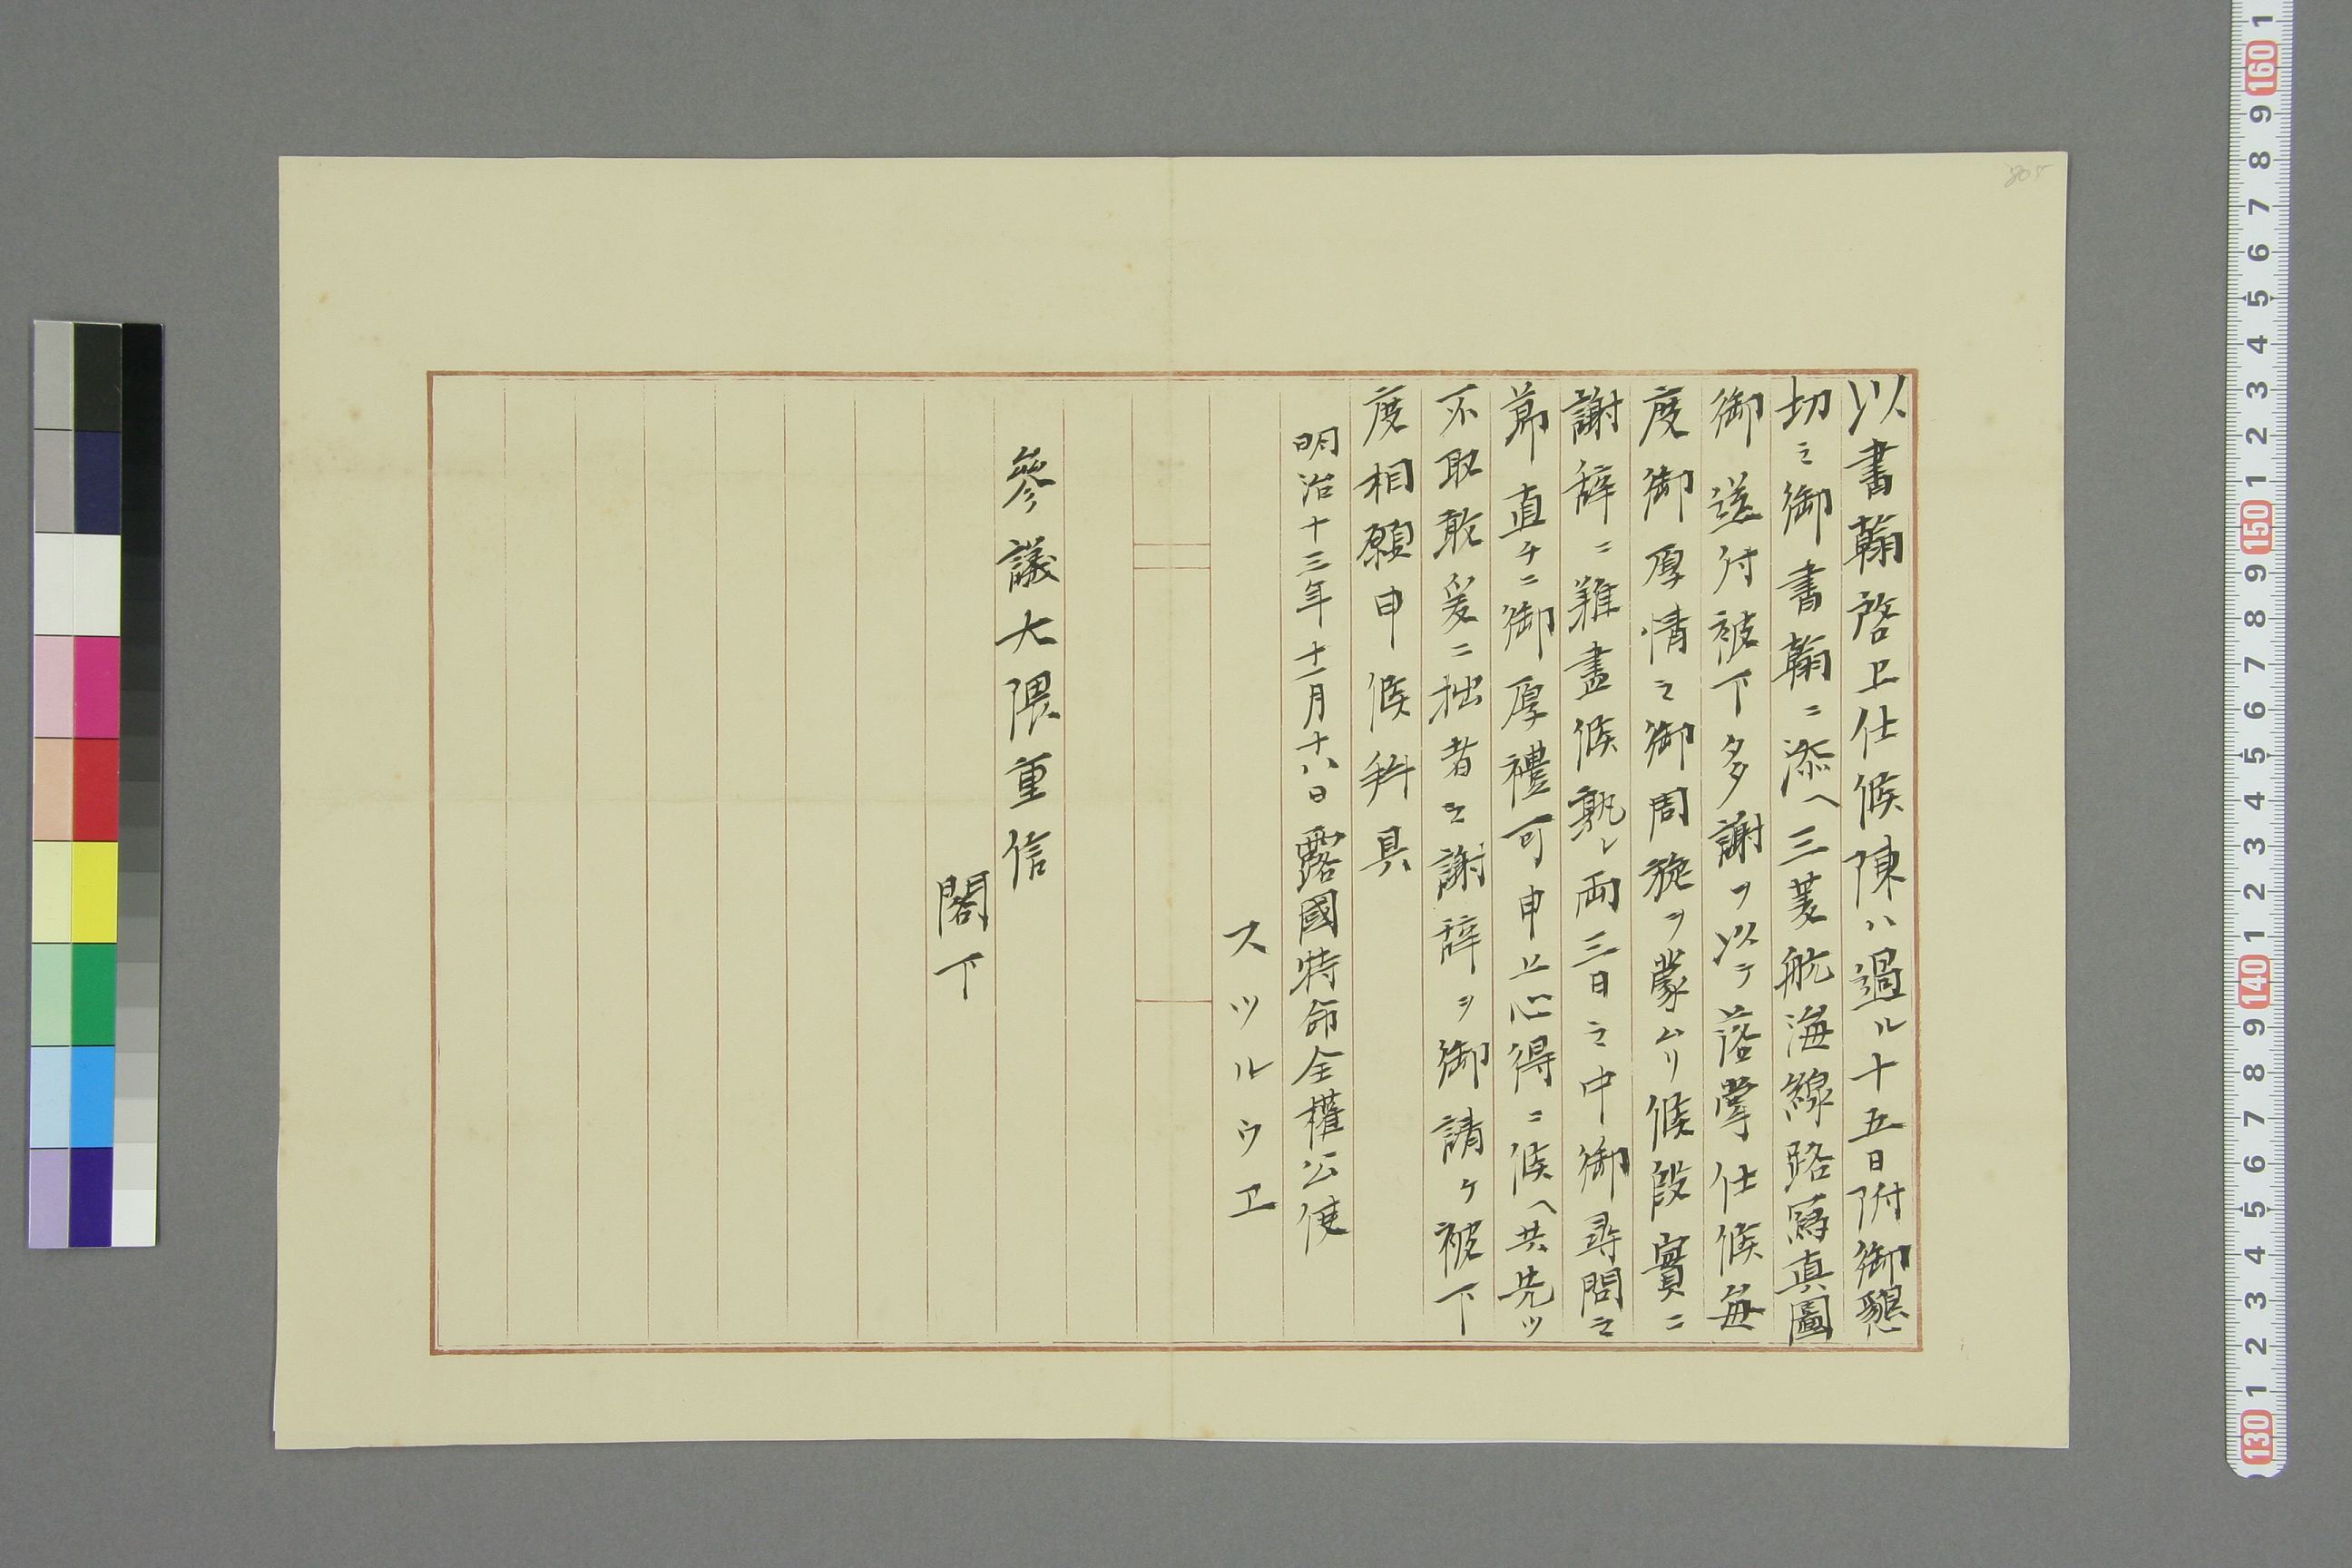 以書翰啓上仕候陳ハ過ル十五日附御懇
切之御書翰ニ添ヘ三菱航海線路寫真圖
御送付被下多謝ヲ以テ落掌仕候毎
度御厚情之御周旋ヲ蒙ムリ候段實ニ
謝辞ニ難盡候孰レ両三日之中御尋問之
節直チニ御厚禮可申上心得ニ候ヘ共先ツ
不取敢爰ニ拙者之謝辞ヲ御請ケ被下
度相願申候拜具
明治十三年十二月十八日露國特命全權公使
スツルウヱ
參議大隈重信
閣下
805